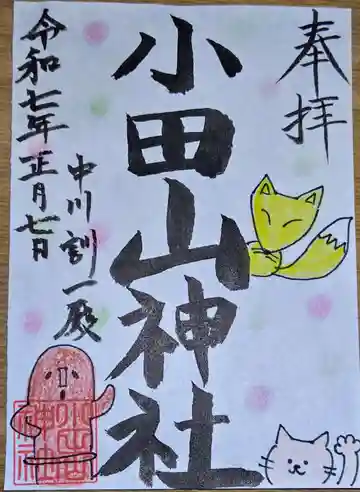 奉拝
小田山神社
中川訓一殿
令和七年正月七日
小田山
神社